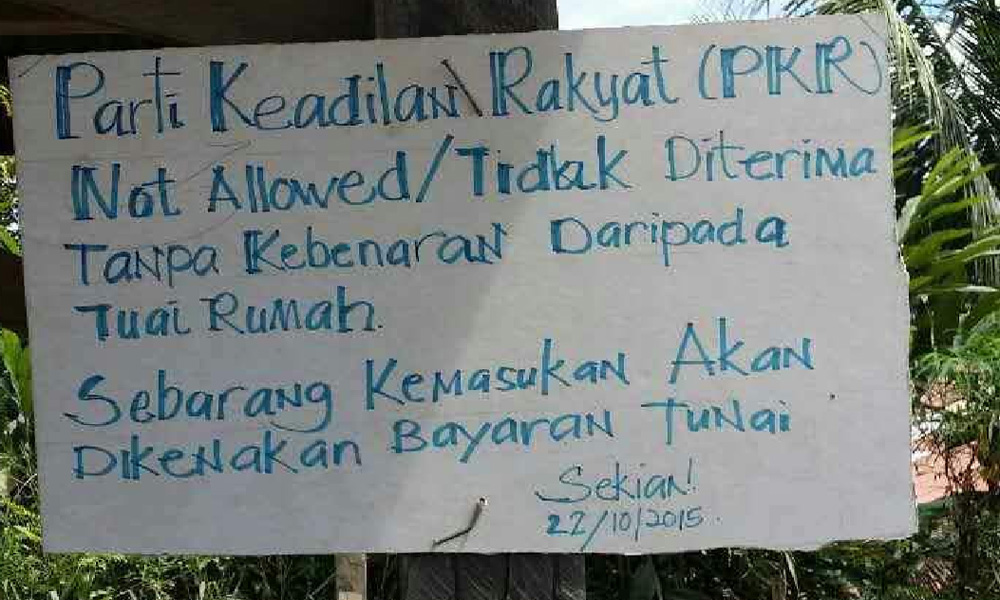 Parti Keadilan\Rakyat (PKR)
Not Allowed/Tidak Diterima
Tanpa Kebenaran Daripada
Tuai Rumah.
Sebarang Kemasukan Akan
Dikenakan Bayaran Tunai
Sekian!
22/10/2015.